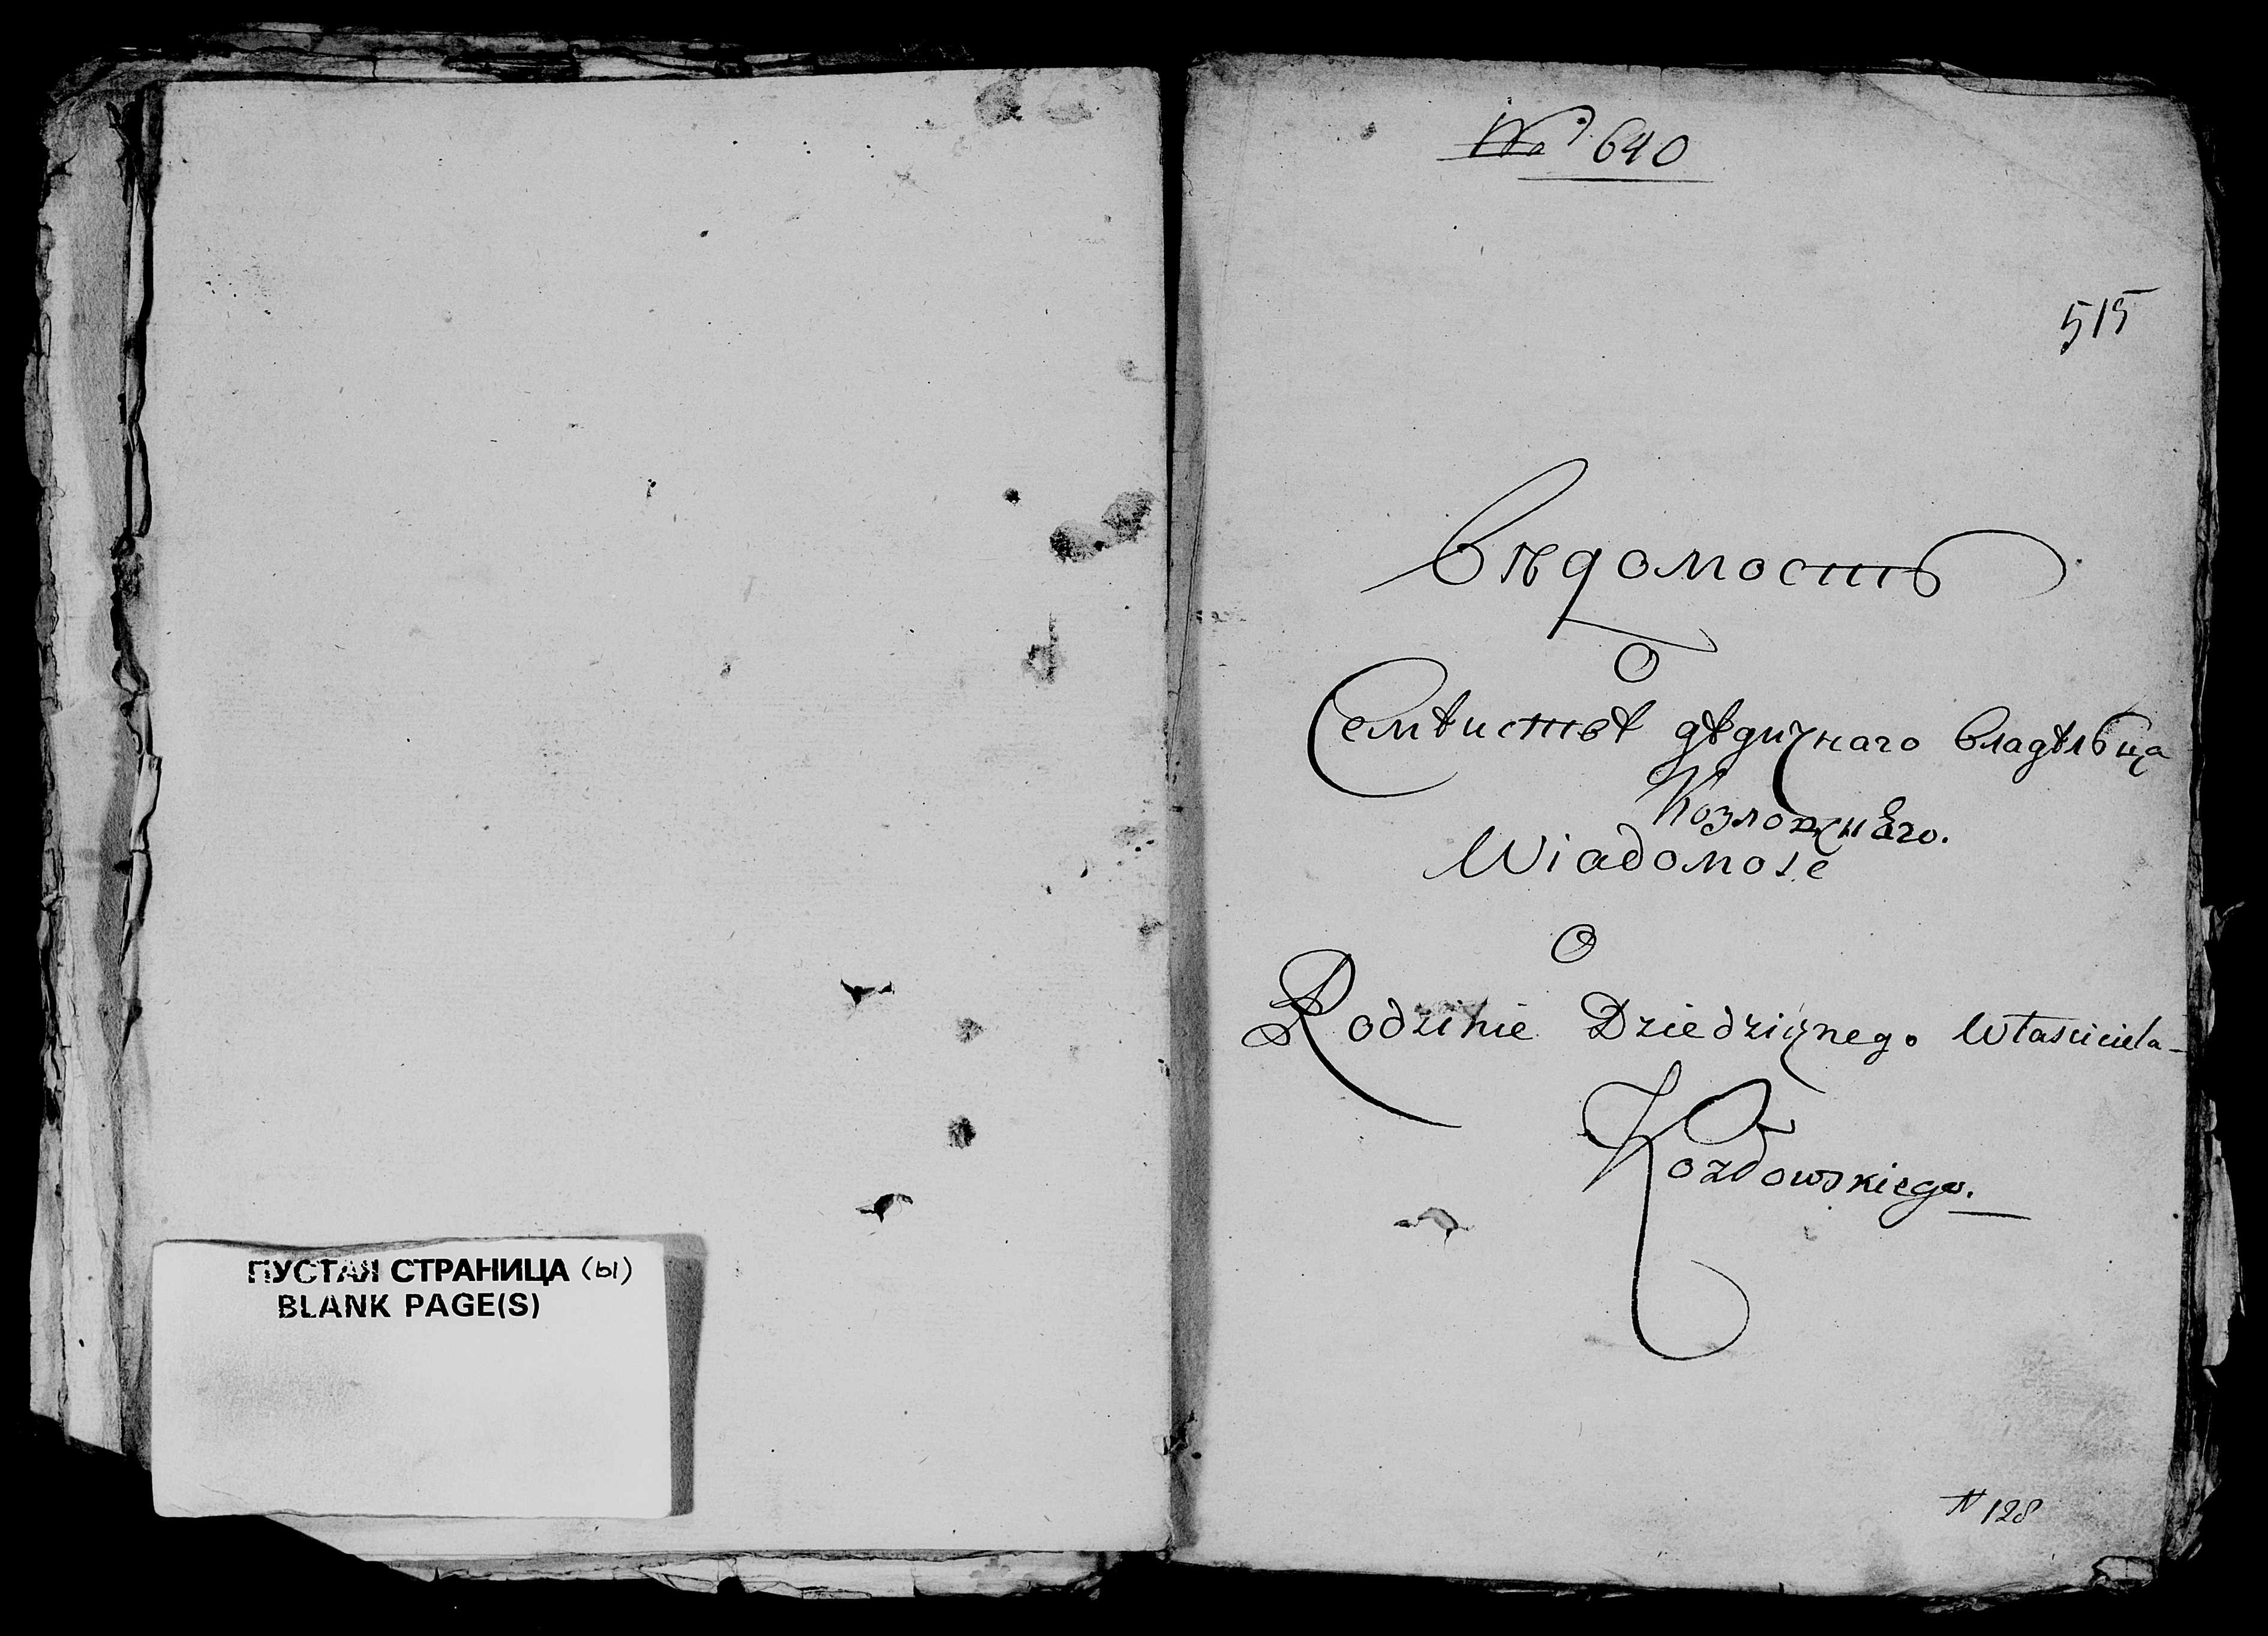 ПУСТАЯ СТРАНИЦА (ы)
BLANK PAGE(S)
№ 640
515
Вѣдомость
О
Семѣиствѣ дѣдичнаго владѣльца
Козловскаго.
Wiadomosc
O
Rodzinie Dziedzicznego Własciciela
Kozłowskiego.
N 128